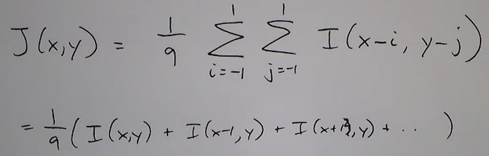 J(x,y) = 1/9 ∑_{i=-1}^{1} ∑_{j=-1}^{1} I(x-i, y-j)
= 1/9 ( I(x,y) + I(x-1,y) + I(x+1,y) + ... )